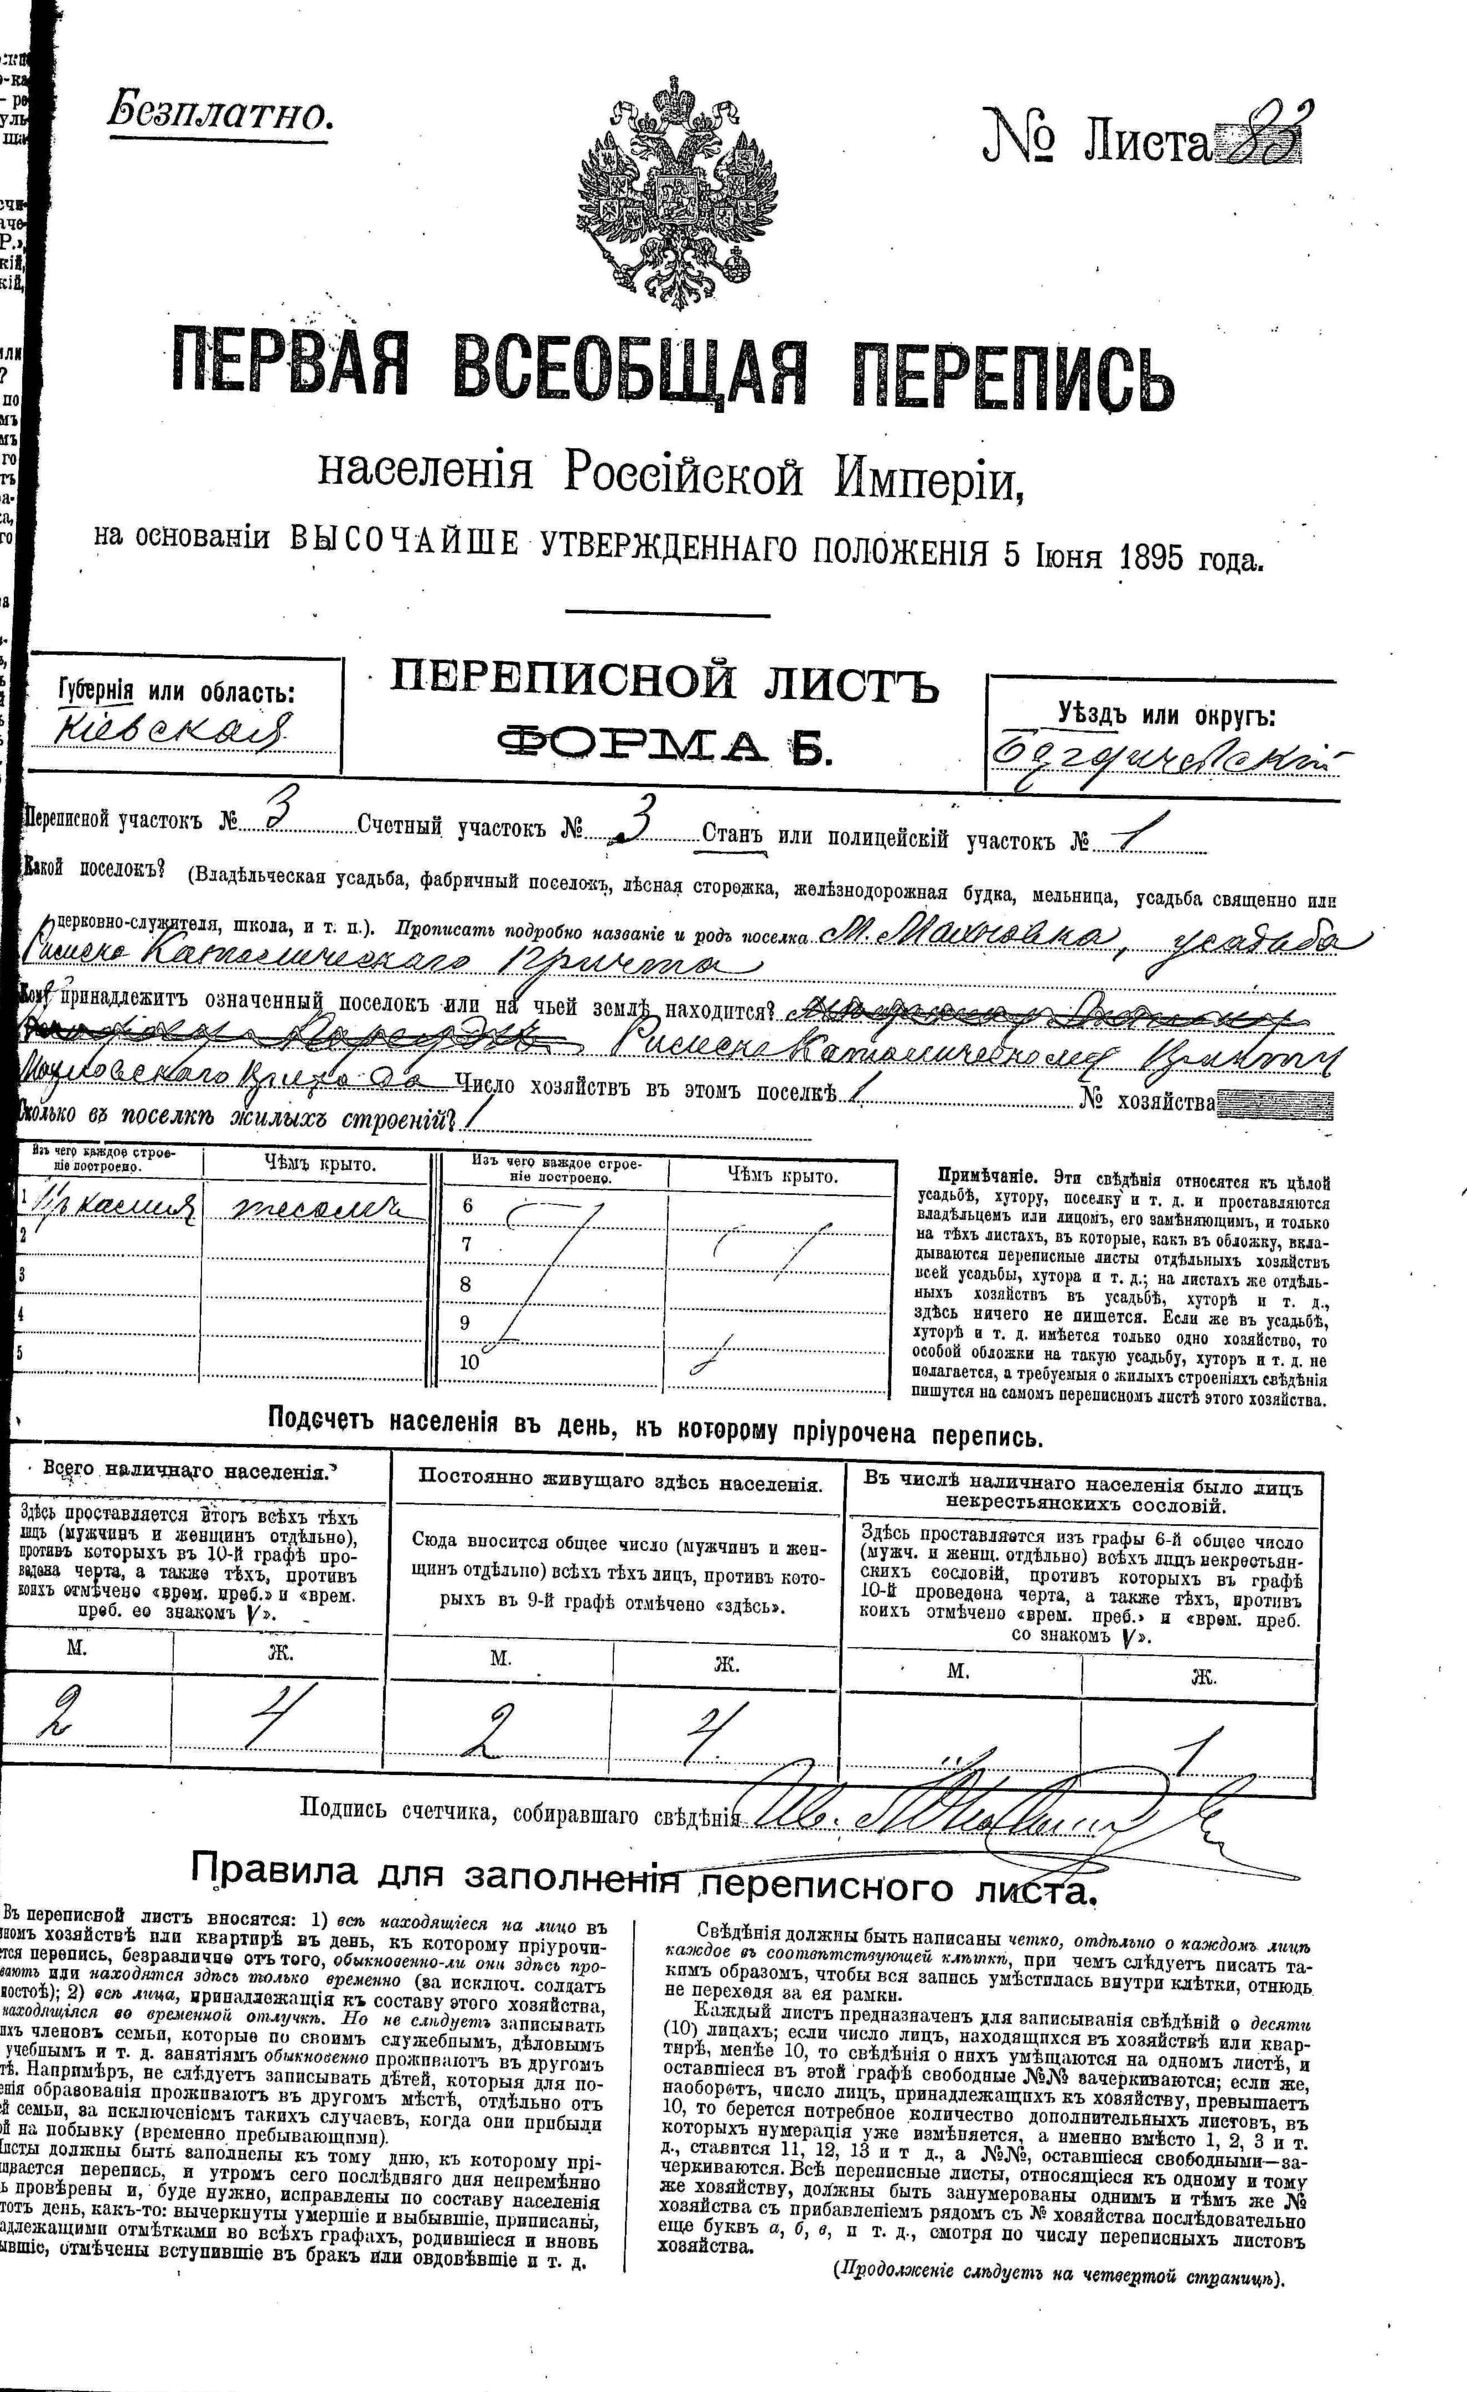 Безплатно.
№ Листа 83
ПЕРВАЯ ВСЕОБЩАЯ ПЕРЕПИСЬ
населенія Россійской Имперіи,
на основаніи ВЫСОЧАЙШЕ УТВЕРЖДЕННАГО ПОЛОЖЕНІЯ 5 Іюня 1895 года.
Губернія или область:
Кіевская
ПЕРЕПИСНОЙ ЛИСТЪ
ФОРМА Б.
Уѣздъ или округъ:
Бердичевскій
Переписной участокъ № 3 Счетный участокъ № 3 Станъ или полицейскій участокъ № 1
Какой поселокъ? (Владѣльческая усадьба, фабричный поселокъ, лѣсная сторожка, желѣзнодорожная будка, мельница, усадьба священно или
церковно-служителя, школа, и т. п.). Прописать подробно названіе и родъ поселка М. Махновка, усадьба
Римско Католическаго Причта
Кому принадлежитъ означенный поселокъ или на чьей землѣ находится?
Римско Католическому Причту
Махновскаго Прихода Число хозяйствъ въ этомъ поселкѣ 1 № хозяйства
Сколько въ поселкѣ жилыхъ строеній? 1
Изъ чего каждое строе-
ніе построено.
Чѣмъ крыто.
Изъ чего каждое строе-
ніе построено.
Чѣмъ крыто.
1 Изъ камня тесомъ 6
2 7
3 8
4 9
5 10
Примѣчаніе. Эти свѣдѣнія относятся къ цѣлой
усадьбѣ, хутору, поселку и т. д. и проставляются
владѣльцемъ или лицомъ, его замѣняющимъ, и только
на тѣхъ листахъ, въ которые, какъ въ обложку, вкла-
дываются переписные листы отдѣльныхъ хозяйствъ
всей усадьбы, хутора и т. д.; на листахъ же отдѣль-
ныхъ хозяйствъ въ усадьбѣ, хуторѣ и т. д.,
здѣсь ничего не пишется. Если же въ усадьбѣ,
хуторѣ и т. д. имѣется только одно хозяйство, то
особой обложки на такую усадьбу, хуторъ и т. д. не
полагается, а требуемыя о жилыхъ строеніяхъ свѣдѣнія
пишутся на самомъ переписномъ листѣ этого хозяйства.
Подсчетъ населенія въ день, къ которому пріурочена перепись.
Всего наличнаго населенія.
Здѣсь проставляется итогъ всѣхъ тѣхъ
лицъ (мужчинъ и женщинъ отдѣльно),
противъ которыхъ въ 10-й графѣ про-
ведена черта, а также тѣхъ, противъ
коихъ отмѣчено «врем. преб.» и «врем.
преб. со знакомъ V».
М. Ж.
2 4
Постоянно живущаго здѣсь населенія.
Сюда вносится общее число (мужчинъ и жен-
щинъ отдѣльно) всѣхъ тѣхъ лицъ, противъ кото-
рыхъ въ 9-й графѣ отмѣчено «здѣсь».
М. Ж.
2 4
Въ числѣ наличнаго населенія было лицъ
некрестьянскихъ сословій.
Здѣсь проставляется изъ графы 6-й общее число
(мужч. и женщ. отдѣльно) всѣхъ лицъ некрестьян-
скихъ сословій, противъ которыхъ въ графѣ
10-й проведена черта, а также тѣхъ, противъ
коихъ отмѣчено «врем. преб.» и «врем. преб.
со знакомъ V».
М. Ж.
1
Подпись счетчика, собиравшаго свѣдѣнія
Правила для заполненія переписного листа.
Въ переписной листъ вносятся: 1) всѣ находящіеся на лицо въ
хозяйствѣ или квартирѣ въ день, къ которому пріурочи-
перепись, безразлично отъ того, обыкновенно-ли они здѣсь про-
или находятся здѣсь только временно (за исключ. солдатъ
2) всѣ лица, принадлежащія къ составу этого хозяйства,
находящіяся во временной отлучкѣ. Но не слѣдуетъ записывать
членовъ семьи, которые по своимъ служебнымъ, дѣловымъ
учебнымъ и т. д. занятіямъ обыкновенно проживаютъ въ другомъ
Напримѣръ, не слѣдуетъ записывать дѣтей, которыя для по-
образованія проживаютъ въ другомъ мѣстѣ, отдѣльно отъ
семьи, за исключеніемъ такихъ случаевъ, когда они прибыли
на побывку (временно пребывающими).
Листы должны быть заполнены къ тому дню, къ которому прі-
перепись, и утромъ сего послѣдняго дня непремѣнно
провѣрены и, буде нужно, исправлены по составу населенія
день, какъ-то: вычеркнуты умершіе и выбывшіе, приписаны,
отмѣтками во всѣхъ графахъ, родившіеся и вновь
отмѣчены вступившіе въ бракъ или овдовѣвшіе и т. д.
Свѣдѣнія должны быть написаны четко, отдѣльно о каждомъ лицѣ
каждое въ соотвѣтствующей клѣткѣ, при чемъ слѣдуетъ писать та-
кимъ образомъ, чтобы вся запись умѣстилась внутри клѣтки, отнюдь
не переходя за ея рамки.
Каждый листъ предназначенъ для записыванія свѣдѣній о десяти
(10) лицахъ; если число лицъ, находящихся въ хозяйствѣ или квар-
тирѣ, менѣе 10, то свѣдѣнія о нихъ умѣщаются на одномъ листѣ, и
оставшіеся въ этой графѣ свободные №№ зачеркиваются; если же,
наоборотъ, число лицъ, принадлежащихъ къ хозяйству, превышаетъ
10, то берется потребное количество дополнительныхъ листовъ, въ
которыхъ нумерація уже измѣняется, а именно вмѣсто 1, 2, 3 и т.
д., ставится 11, 12, 13 и т д., а №№, оставшіеся свободными—за-
черкиваются. Всѣ переписные листы, относящіеся къ одному и тому
же хозяйству, должны быть занумерованы однимъ и тѣмъ же №
хозяйства съ прибавленіемъ рядомъ съ № хозяйства послѣдовательно
еще буквъ а, б, в, и т. д., смотря по числу переписныхъ листовъ
хозяйства.
(Продолженіе слѣдуетъ на четвертой страницѣ).